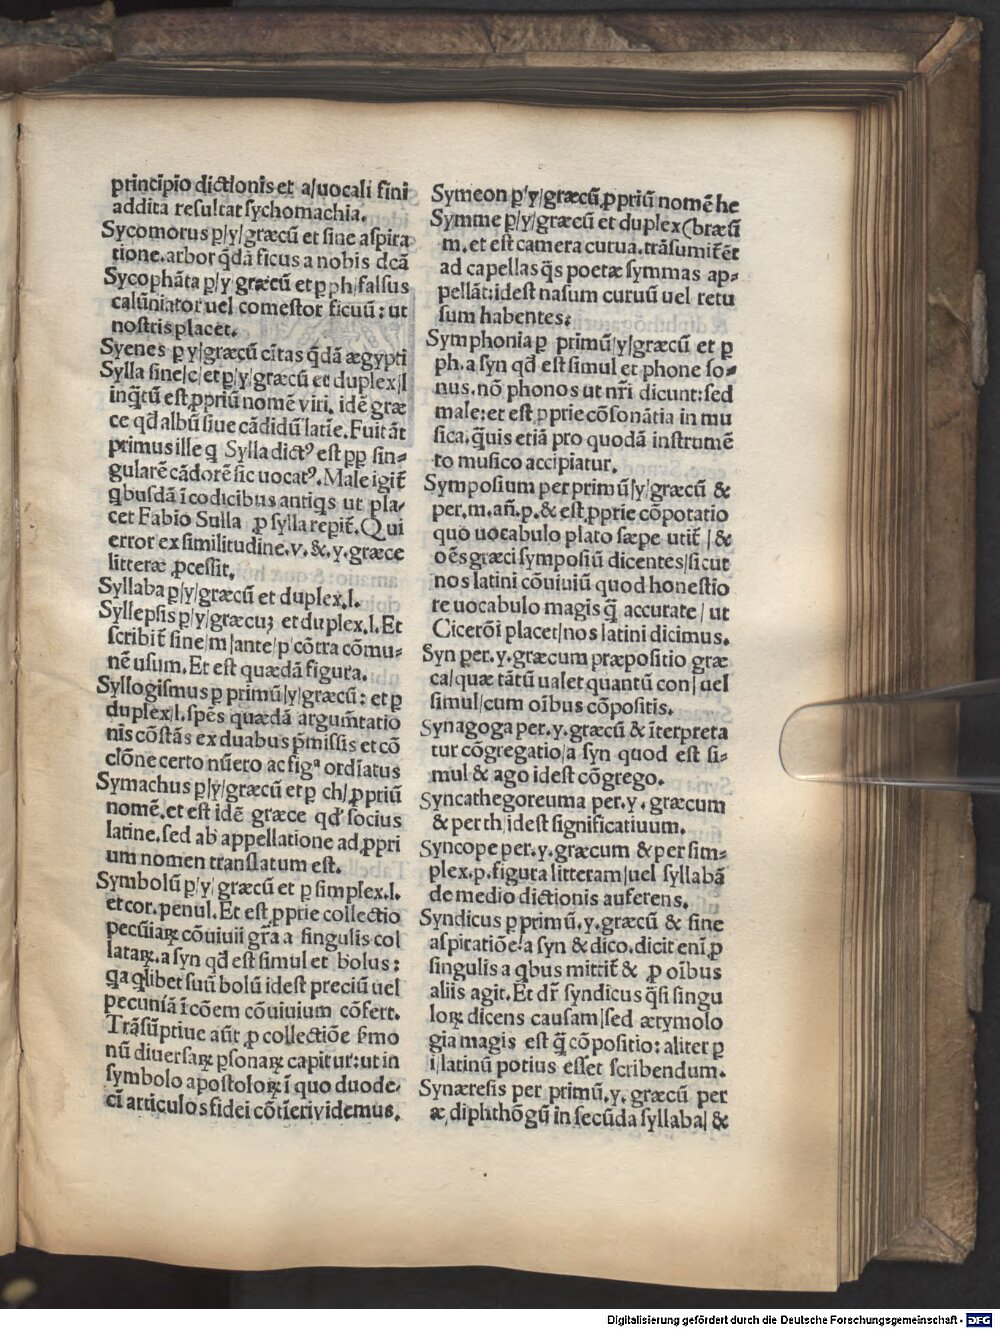 principio dictionis et a/uocali fini
addita resultat sychomachia.
Sycomorus p/y/græcū et sine aspira
tione.arbor q̄dā ficus a nobis dcā
Sycophāta p/y græcū et p ph/falsus
calūniator uel comestor ficuū: ut
nostris placet.
Syenes p y/græcū cītas q̄dā ægypti
Sylla sine/c/et p/y/græcū et duplex/l
inq̄tū est ꝓpriū nomē viri. idē græ
ce qd̄ albū siue cādidū latīe.Fuit āt
primus ille q Sylla dictꝰ est pp sin⸗
gularē cādorē sic uocatꝰ.Male igit̄
qbusdā ī codicibus antiqs ut pla⸗
cet Fabio Sulla ꝓ sylla repit̄.Qui
error ex similitudine.v.&.y.græce
litteræ ꝓcessit.
Syllaba p/y/græcū et duplex.l.
Syllepsis p/y/græcuꝫ et duplex.l.Et
scribit̄ sine/m/ante/p/cōtra cōmu⸗
nē usum.Et est quædā figura.
Syllogismus p primū/y/græcū: et p
duplex/l.spēs quædā argum̄tatio
nis cōstās ex duabus p̄missis et cō
clōne certo nūero ac figᵃ ordīatus
Symachus p/y/græcū et p ch/ꝓpriū
nomē.et est idē græce qd̄ socius
latine.sed ab appellatione ad ꝓpri
um nomen translatum est.
Symbolū p/y/græcū et p simplex.l.
et cor.penul.Et est ꝓprie collectio
pecūiaꝝ cōuiuii gr̄a a singulis col
lataꝝ.a syn qd̄ est simul et bolus:
qa qlibet suū bolū idest preciū uel
pecuniā ī cōem cōuiuium cōfert.
Trāsūptiue aūt ꝓ collectiōe s̄mo
nū diuersaꝝ psonaꝝ capitur:ut in
symbolo apostoloꝝ ī quo duode⸗
cī articulos fidei cōtīeri videmus.
Symeon p/y/græcū ꝓpriū nomē he
Symme p/y/græcū et duplex (bræū
m.et est camera curua.trāsumit̄ēt
ad capellas qs poetæ symmas ap⸗
pellāt:idest nasum curuū uel retu
sum habentes:
Symphonia p primū/y/græcū et p
ph.a syn qd̄ est simul et phone so⸗
nus.nō phonos ut nr̄i dicunt:sed
male:et est ꝓprie cōsonātia in mu
sica.q̄uis etiā pro quodā instrumē
to musico accipiatur.
Symposium per primū/y/græcū &
per.m.añ.p.& est ꝓprie cōpotatio
quo uocabulo plato sæpe utit̄ / &
oēs græci symposiū dicentes/sicut
nos latini cōuiuiū quod honestio
re uocabulo magis q̄ accurate / ut
Cicerōi placet/nos latini dicimus.
Syn per.y.græcum præpositio græ
ca/quæ tātū ualet quantū con/uel
simul/cum oībus cōpositis.
Synagoga per.y.græcū & īterpreta
tur cōgregatio/a syn quod est si⸗
mul & ago idest cōgrego.
Syncathegoreuma per.y. græcum
& per th/idest significatiuum.
Syncope per.y.græcum & per sim⸗
plex.p.figura litteram/uel syllabā
de medio dictionis auferens.
Syndicus p primū.y.græcū & sine
aspiratiōe/a syn & dico.dicit enī ꝓ
singulis a qbus mittit̄ & ꝓ oībus
aliis agit.Et dr̄ syndicus q̄si singu
loꝝ dicens causam/sed ætymolo
gia magis est q̄ cōpositio:aliter p
i/latinū potius esset scribendum.
Synæresis per primū.y.græcū per
æ diphthōgū in secūda syllaba/ &
Digitalisierung gefördert durch die Deutsche Forschungsgemeinschaft - DFG